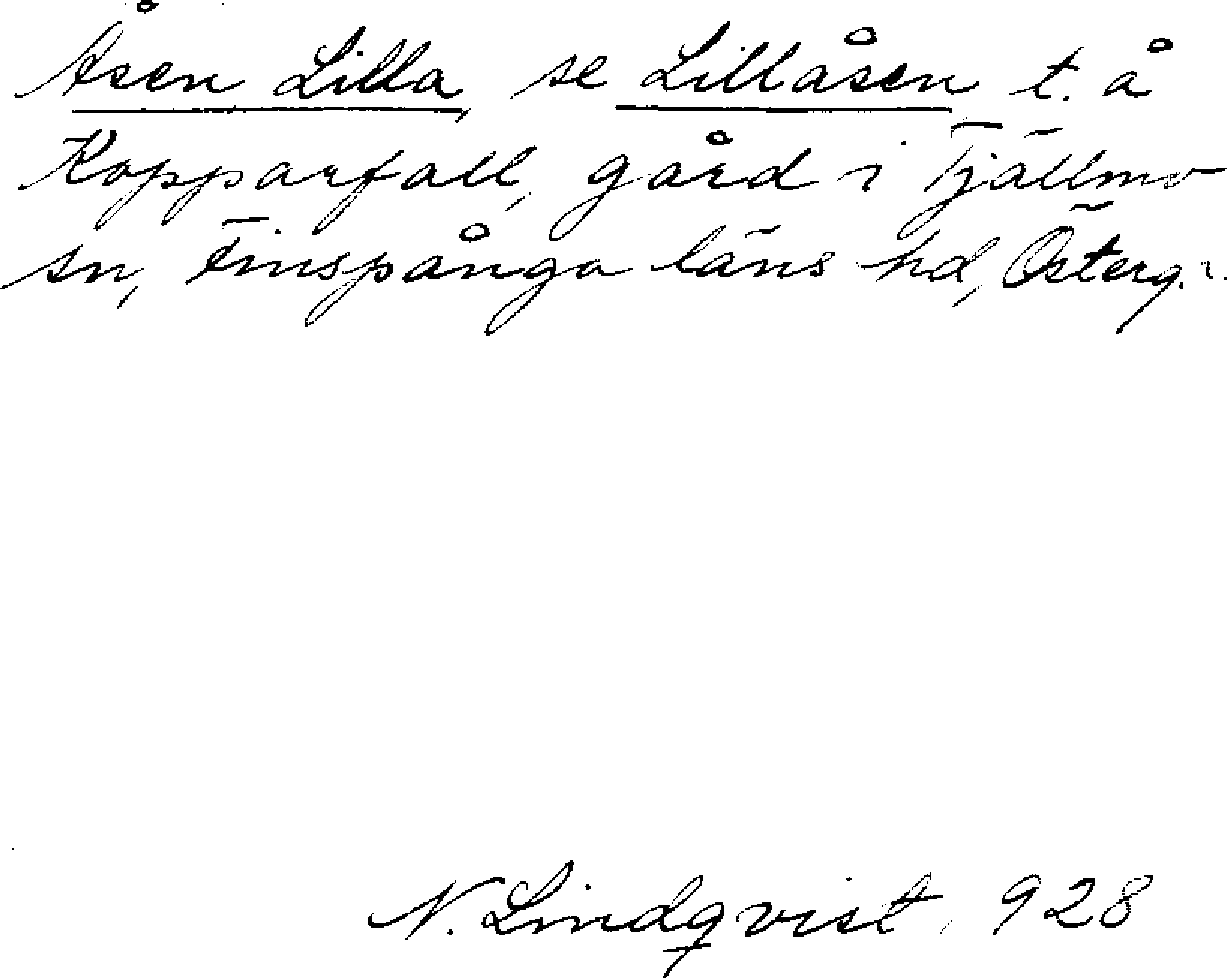 Åsen Lilla, se Lillåsen t. å
Kopparfall, gård i Tjällmo
sn, Finspånga läns hd, Österg.
N. Lindqvist, 928